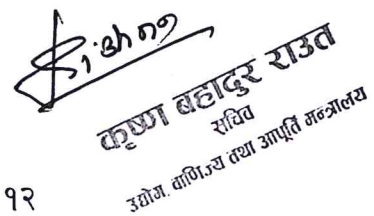 Krishna
कृष्ण बहादुर राउत
सचिव
उद्योग, वाणिज्य तथा आपूर्ति मन्त्रालय
१२